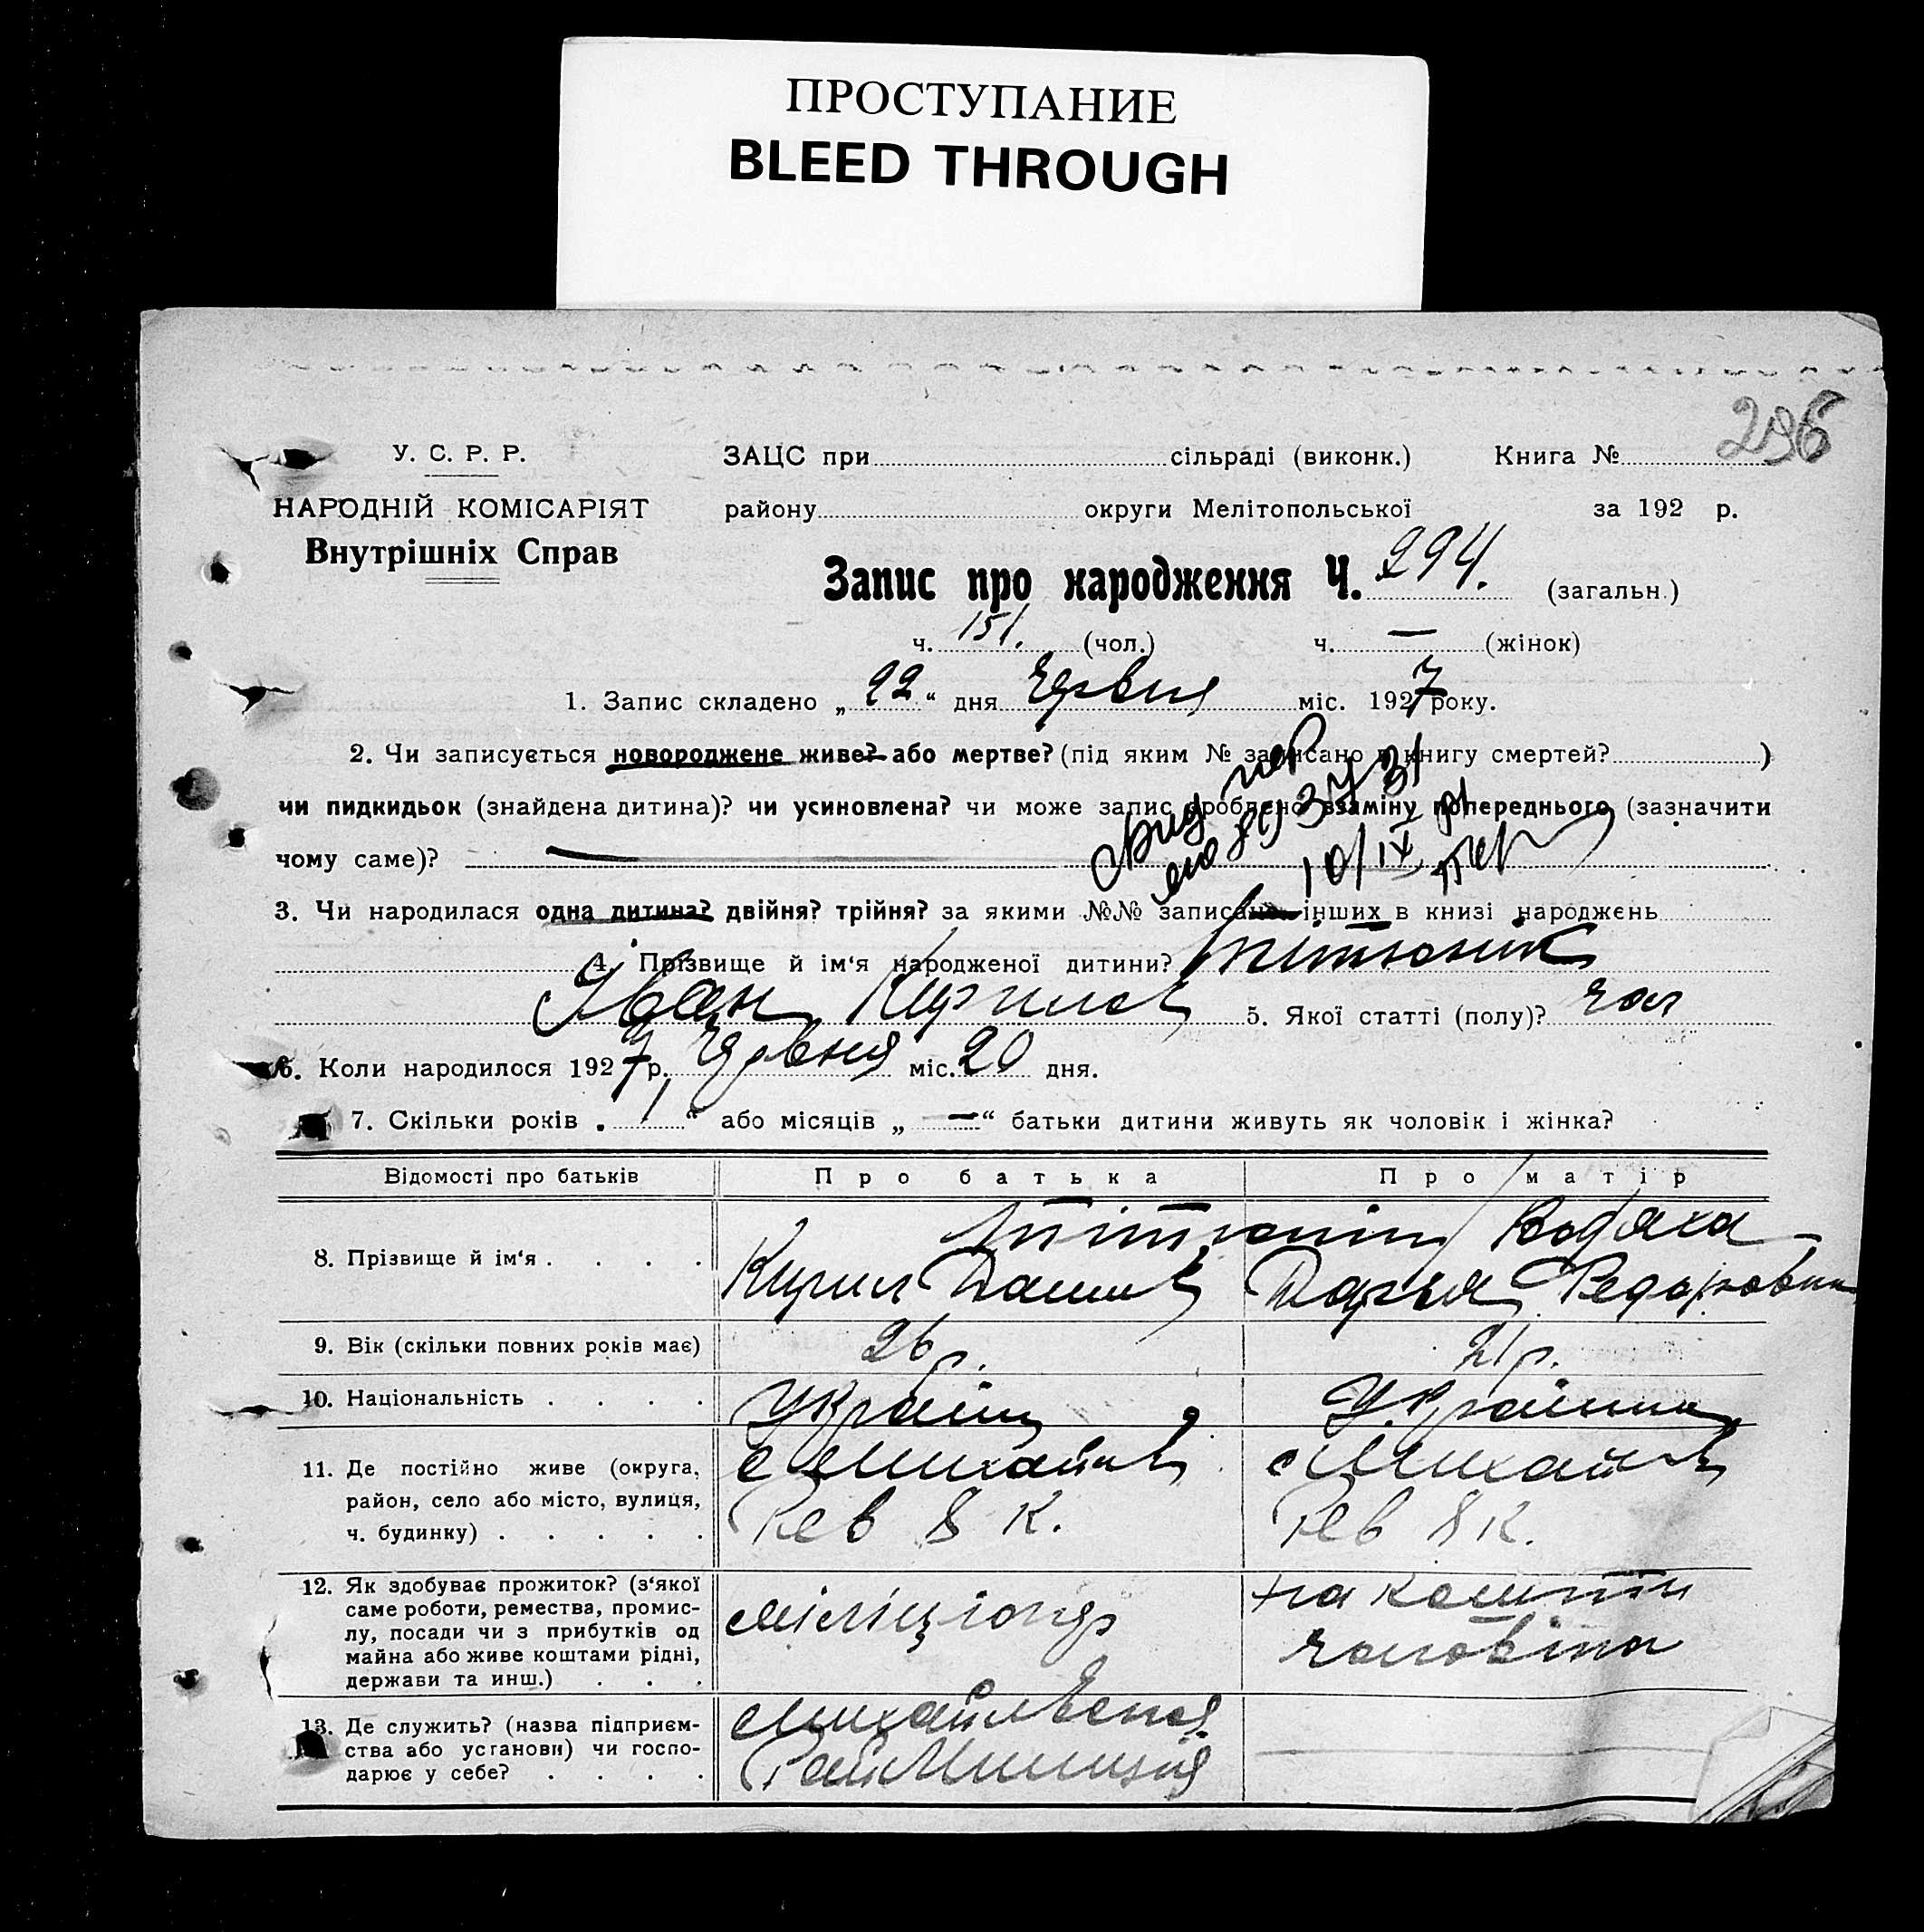 ПРОСТУПАНИЕ
BLEED THROUGH
296
У. С. Р. Р.
НАРОДНІЙ КОМІСАРІЯТ
Внутрішніх Справ
ЗАЦС при сільраді (виконк.) Книга №
району округи Мелітопольської за 192 р.
Запис про народження Ч. 294. (загальн.)
ч. 151. (чол.) ч. — (жінок)
1. Запис складено „ 22 “ дня Червня міс. 1927 року.
2. Чи записується новороджене живе? або мертве? (під яким № записано в книгу смертей? )
чи пидкидьок (знайдена дитина)? чи усиновлена? чи може запис зроблено взаміну попереднього (зазначити
чому саме)? —
3. Чи народилася одна дитина? двійня? трійня? за якими №№ записано інших в книзі народжень
4. Прізвище й ім‘я народженої дитини?
Іван Кирилов 5. Якої статті (полу)? чол
6. Коли народилося 1927 р. Червня міс. 20 дня.
7. Скільки років „ 1 “ або місяців „ — “ батьки дитини живуть як чоловік і жінка?
Відомості про батьків Про батька Про матір
8. Прізвище й ім‘я . . . .
Кирил Дарья Федоровна
9. Вік (скільки повних років має) 26 р. 21 р.
10. Національність . . . . Українц Українка
11. Де постійно живе (округа,
район, село або місто, вулиця,
ч. будинку) . . . . .
с Михайлів с Михайлів
Рев 8 к. Рев 8 к.
12. Як здобуває прожиток? (з‘якої
саме роботи, ремества, промис-
лу, посади чи з прибутків од
майна або живе коштами рідні,
держави та инш.) . . .
міліціонер на кошти
чоловіка
13. Де служить? (назва підприєм-
ства або установи) чи госпо-
дарює у себе? . . . .
Михайлівська
РайМилиція